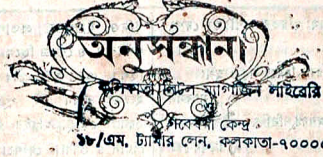 অনুসন্ধান
কলিকাতা লিটল ম্যাগাজিন লাইব্রেরি
ও
গবেষণা কেন্দ্র
১৮/এম, ট্যামার লেন, কলকাতা-৭০০০০